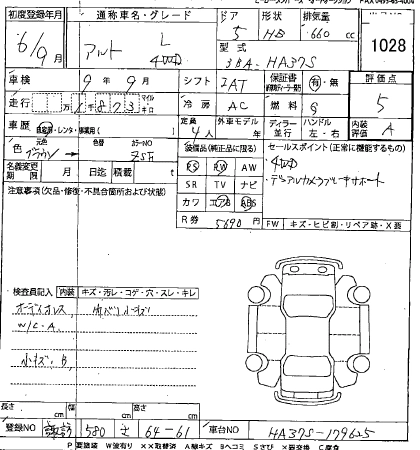 初度登録年月 通称車名・グレード ドア 形状 排気量
6/9月 アルト L 4WD 5 HB 660 cc
型式 3BA-HA37S 1028
車検 9年9月 シフト IAT 保証書 有・無 評価点
走行 万 1 8 7 3 マイル キロ 冷房 AC 燃料 G 5
車歴 自家用・レンタ・事業用( ) 定員 4人 外車モデル ディーラー 並行 ハンドル 左・右 内装 A
色 元色 ブラウン 色替 カラーNO 装備品(純正品に限る) セールスポイント(正常に機能するもの)
名義変更期限 月 日迄 積載 PS PW AW 4WD
SR TV ナビ デュアルカメラブレーキサポート
注意事項(欠品・修復・不具合箇所および状態) カワ エアB ABS
R券 5690 円 FW キズ・ヒビ割・リペア跡・X要
検査員記入 内装 キズ・汚レ・コゲ・穴・スレ・キレ
オーディオレス 内バリ小キズ
W/C・A
小キズ・B
長さ cm 幅 cm 高さ cm
登録NO 580 さ 64-61 車台NO HA37S-179625
P要塗装 W波有り XX取替済 A線キズ Bヘコミ Sさび X要交換 C腐食